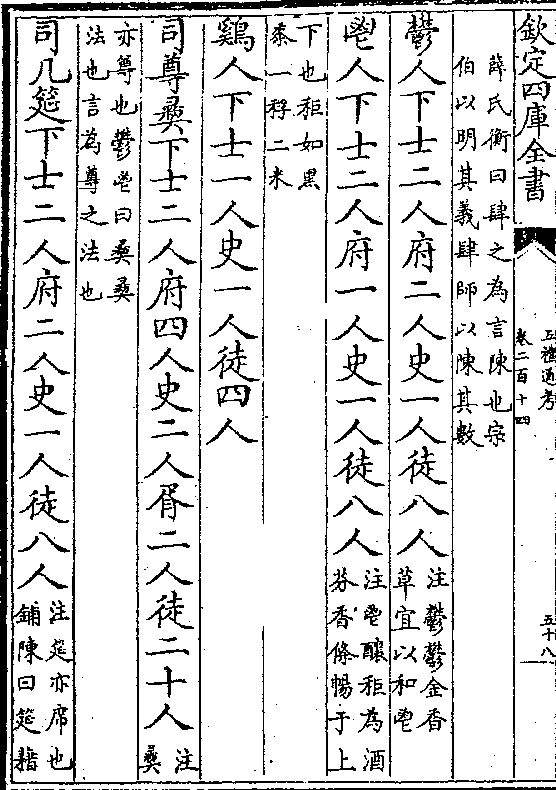 欽定四庫全書
五禮通考
卷二百十四
五十八
薛氏衡曰肆之為言陳也宗
伯以明其義肆師以陳其數
鬱人下士二人府二人史一人徒八人
注鬱鬱金香
草宜以和鬯
鬯人下士二人府一人史一人徒八人
注鬯釀秬為酒
芬香條暢于上
下也秬如黑
黍一稃二米
鷄人下士一人史一人徒四人
司尊彝下士二人府四人史二人胥二人徒二十人
注
彝
亦尊也鬱鬯曰彝彝
法也言為尊之法也
司几筵下士二人府二人史一人徒八人
注筵亦席也
鋪陳曰筵藉